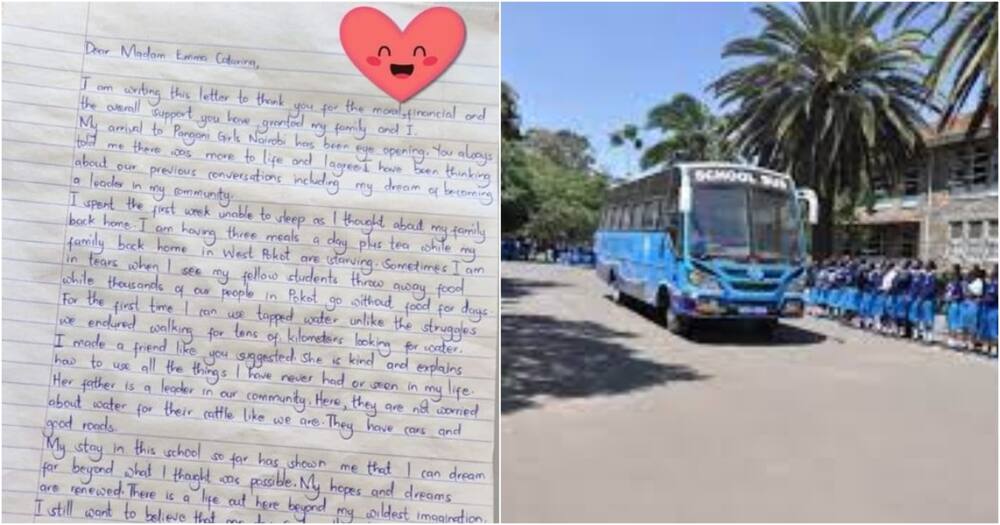 Dear Madam Emma Caturina,
I am writing this letter to thank you for the moral, financial and
the overall support you have granted my family and I.
My arrival to Pangani Girls Nairobi has been eye opening. You always
told me there was more to life and I agree. I have been thinking
about our previous conversations including my dream of becoming
a leader in my community.
I spent the first week unable to sleep as I thought about my family
back home. I am having three meals a day plus tea while my
family back home in West Pokot are starving. Sometimes I am
in tears when I see my fellow students throw away food
while thousands of our people in Pokot go without food for days.
For the first time I can use tapped water unlike the struggles
we endured walking for tens of kilometers looking for water.
I made a friend like you suggested. She is kind and explains
how to use all the things I have never had or seen in my life.
Her father is a leader in our community. Here, they are not worried
about water for their cattle like we are. They have cars and
good roads.
My stay in this school so far has shown me that I can dream
far beyond what I thought was possible. My hopes and dreams
are renewed. There is a life out here beyond my wildest imagination.
I still want to believe that
SCHOOL BUS